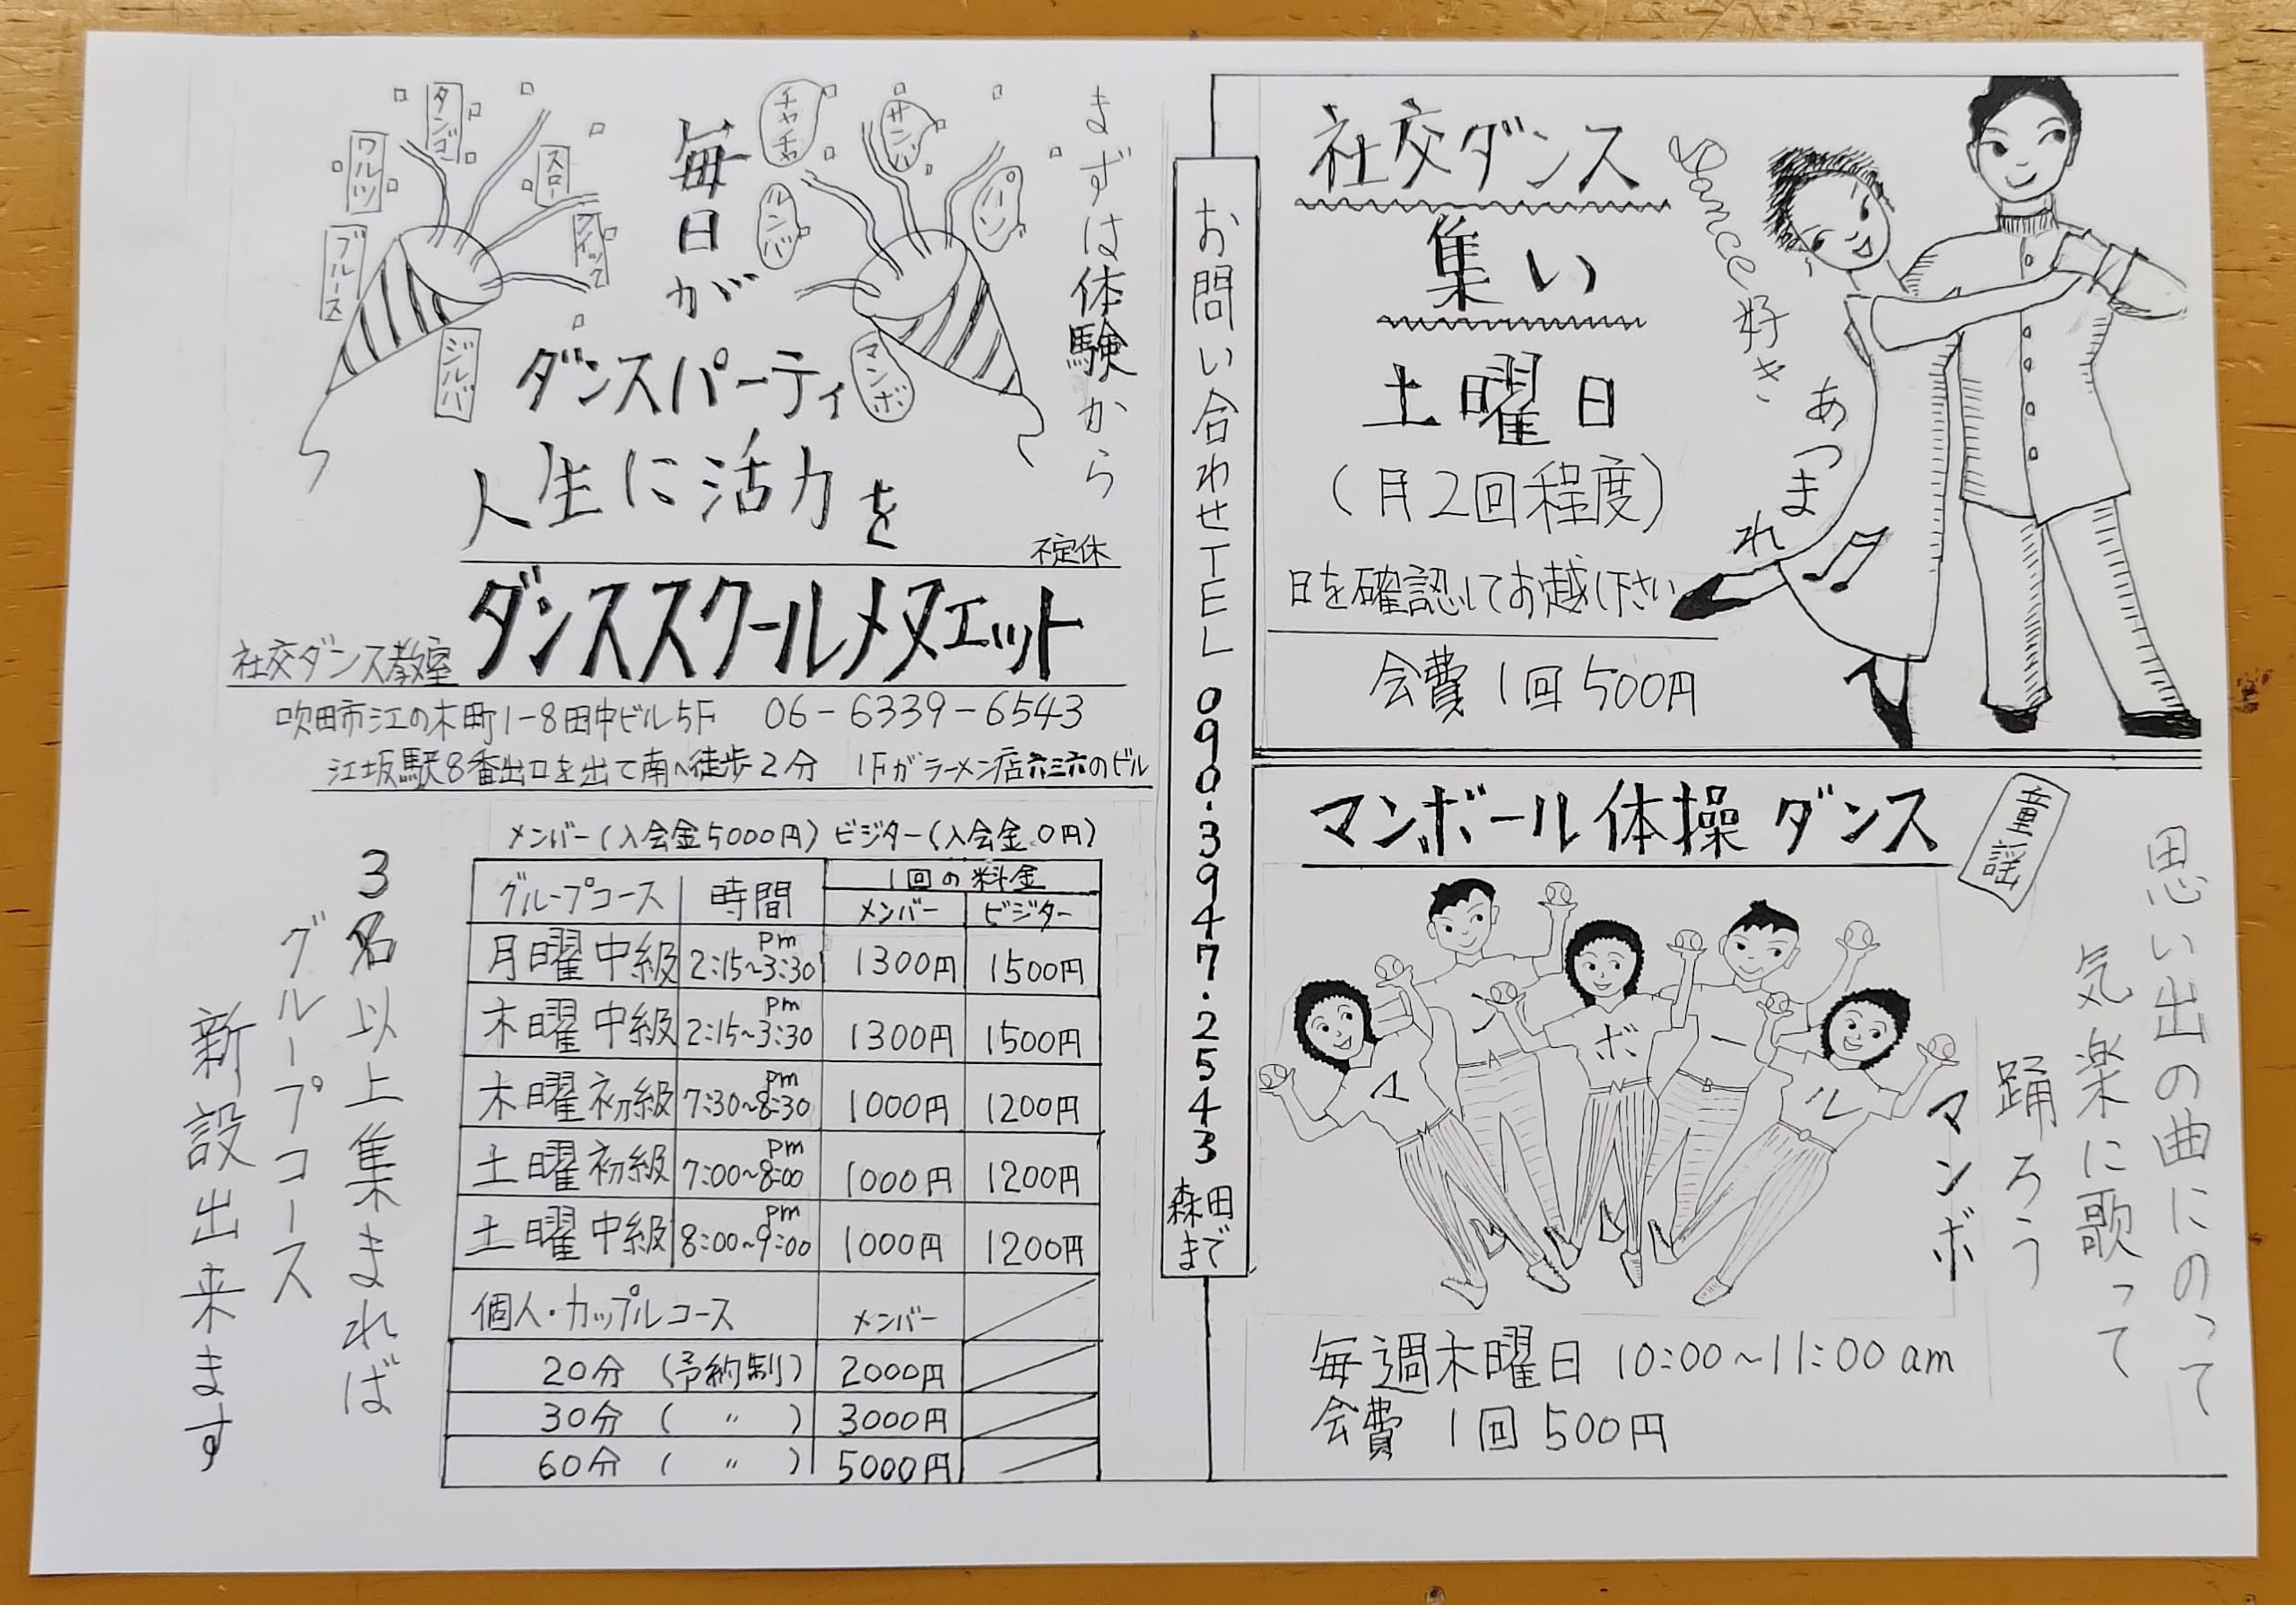 まずは体験から
毎日が
ダンスパーティ
人生に活力を
チャチャ
サンバ
ルンバ
マンボ
タンゴ
ワルツ
スロー
ブルース
クイック
ジルバ
不定休
社交ダンス教室 ダンススクールメヌエット
吹田市江の木町1-8田中ビル5F 06-6339-6543
江坂駅8番出口を出て南へ徒歩2分 1Fがラーメン店六三六のビル
メンバー(入会金5000円) ビジター(入会金.0円)
グループコース 時間 1回の料金
メンバー ビジター
月曜中級 pm 2:15~3:30 1300円 1500円
木曜中級 pm 2:15~3:30 1300円 1500円
木曜初級 pm 7:30~8:30 1000円 1200円
土曜初級 pm 7:00~8:00 1000円 1200円
土曜中級 pm 8:00~9:00 1000円 1200円
個人・カップルコース メンバー
20分 (予約制) 2000円
30分 ( 〃 ) 3000円
60分 ( 〃 ) 5000円
3名以上集まれば
グループコース
新設出来ます
お問い合わせTEL 090.3947.2543 森田まで
社交ダンス
集い
土曜日
(月2回程度)
日を確認してお越し下さい
会費 1回 500円
Dance好き、
あつまれ
マンボール体操ダンス
童謡
思い出の曲にのって
気楽に歌って
踊ろう
マンボ
マ
ン
ボ
ー
ル
毎週木曜日 10:00~11:00 am
会費 1回 500円